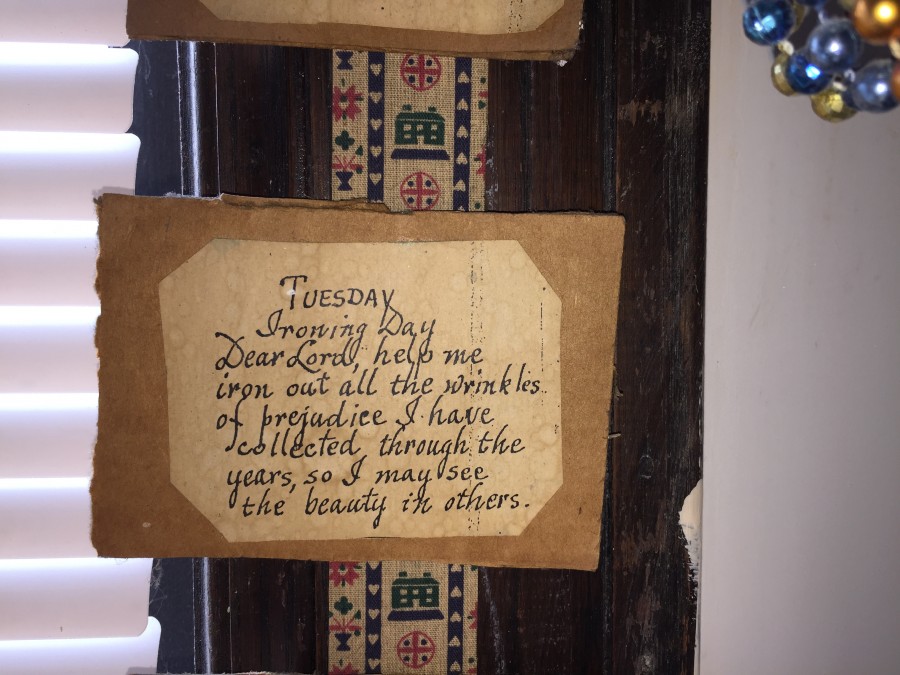 TUESDAY
Ironing Day
Dear Lord, help me
iron out all the wrinkles
of prejudice I have
collected through the
years, so I may see
the beauty in others.